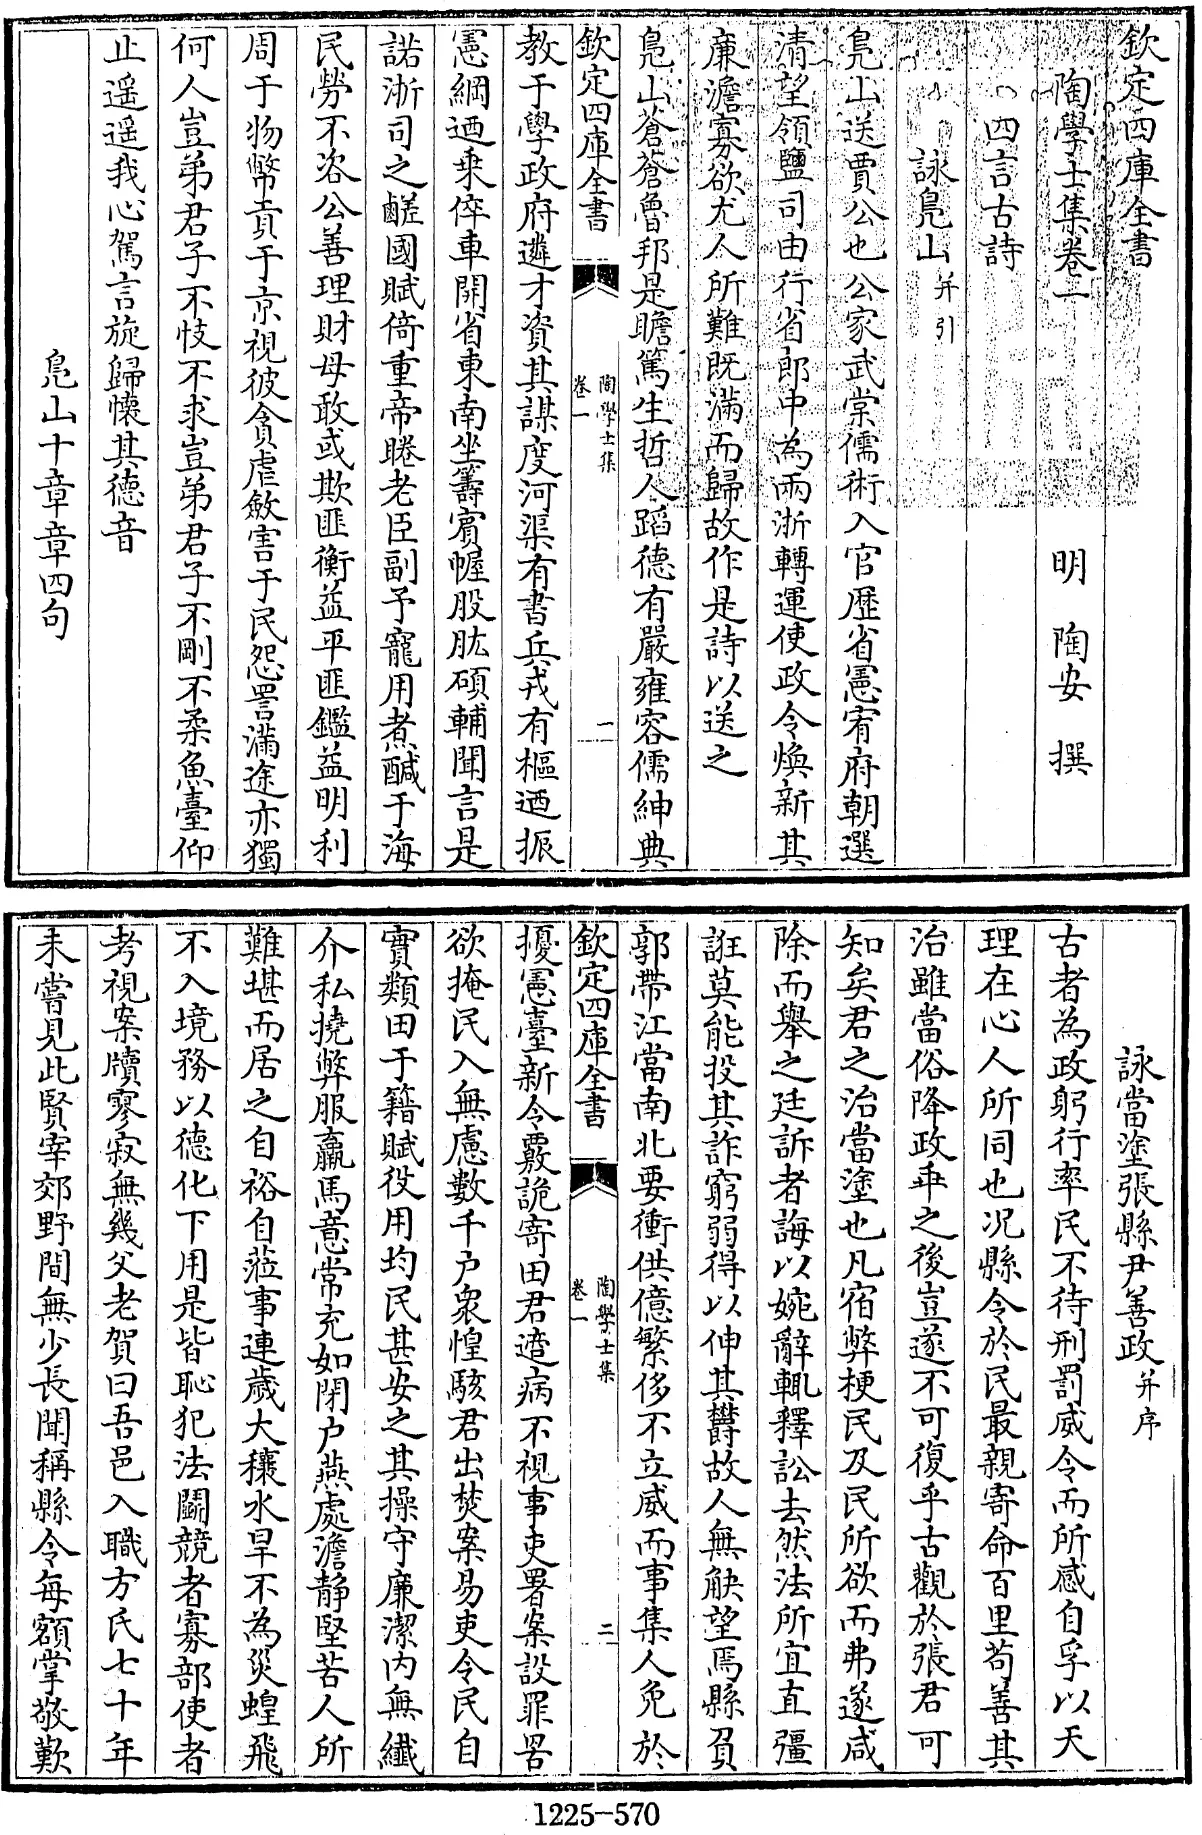 欽定四庫全書
陶學士集卷一
明 陶安 撰
四言古詩
詠鳧山并引
鳧山送賈公也公家武棠儒術入官歷省憲宥府朝選
清望領鹽司由行省郎中為兩浙轉運使政令煥新其
廉澹寡欲尤人所難既滿而歸故作是詩以送之
鳧山蒼蒼魯邦是瞻篤生哲人蹈德有嚴雍容儒紳典
欽定四庫全書
陶學士集
卷一
一
教于學政府遴才資其謀度河渠有書兵戎有樞迺振
憲綱迺乗倅車開省東南坐籌賓幄股肱碩輔聞言是
諾浙司之鹺國賦倚重帝睠老臣副予寵用煮醎于海
民勞不咨公善理財毋敢或欺匪衡益平匪鑑益明利
周于物幣貢于京視彼貪虐斂害于民怨詈滿途亦獨
何人豈弟君子不忮不求豈弟君子不剛不柔魚臺仰
止遥遥我心駕言旋歸懷其德音
鳧山十章章四句
詠當塗張縣尹善政并序
古者為政躬行率民不待刑罰威令而所感自孚以天
理在心人所同也况縣令於民最親寄命百里苟善其
治雖當俗降政乖之後豈遂不可復乎古觀於張君可
知矣君之治當塗也凡宿弊梗民及民所欲而弗遂咸
除而舉之廷訴者誨以婉辭輒釋訟去然法所宜直彊
誑莫能投其詐窮弱得以伸其欝故人無觖望焉縣負
郭帶江當南北要衝供億繁侈不立威而事集人免於
欽定四庫全書
陶學士集
卷一
二
擾憲臺新令覈詭寄田君適病不視事吏署案設罪罟
欲掩民入無慮數千户衆惶駭君出焚案易吏令民自
實類田于籍賦役用均民甚安之其操守廉潔内無纖
介私撓弊服羸馬意常充如閉户燕處澹静堅苦人所
難堪而居之自裕自蒞事連歲大穰水旱不為災蝗飛
不入境務以德化下用是皆恥犯法鬬競者寡部使者
考視案牘寥寂無幾父老賀曰吾邑入職方氏七十年
未嘗見此賢宰郊野間無少長聞稱縣令每額掌敬歎
1225-570